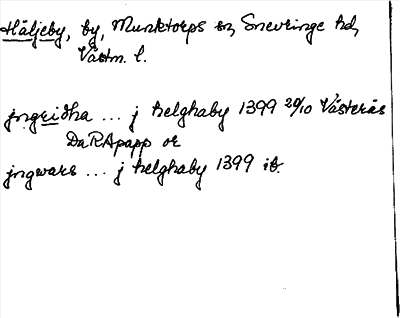 Häljeby, by, Munktorps sn, Snevringe hd,
Västm. l.
jngridha ... j helghaby 1399 20/10 Västerås
DaRApapp or
jngwars ... j helghaby 1399 ib.